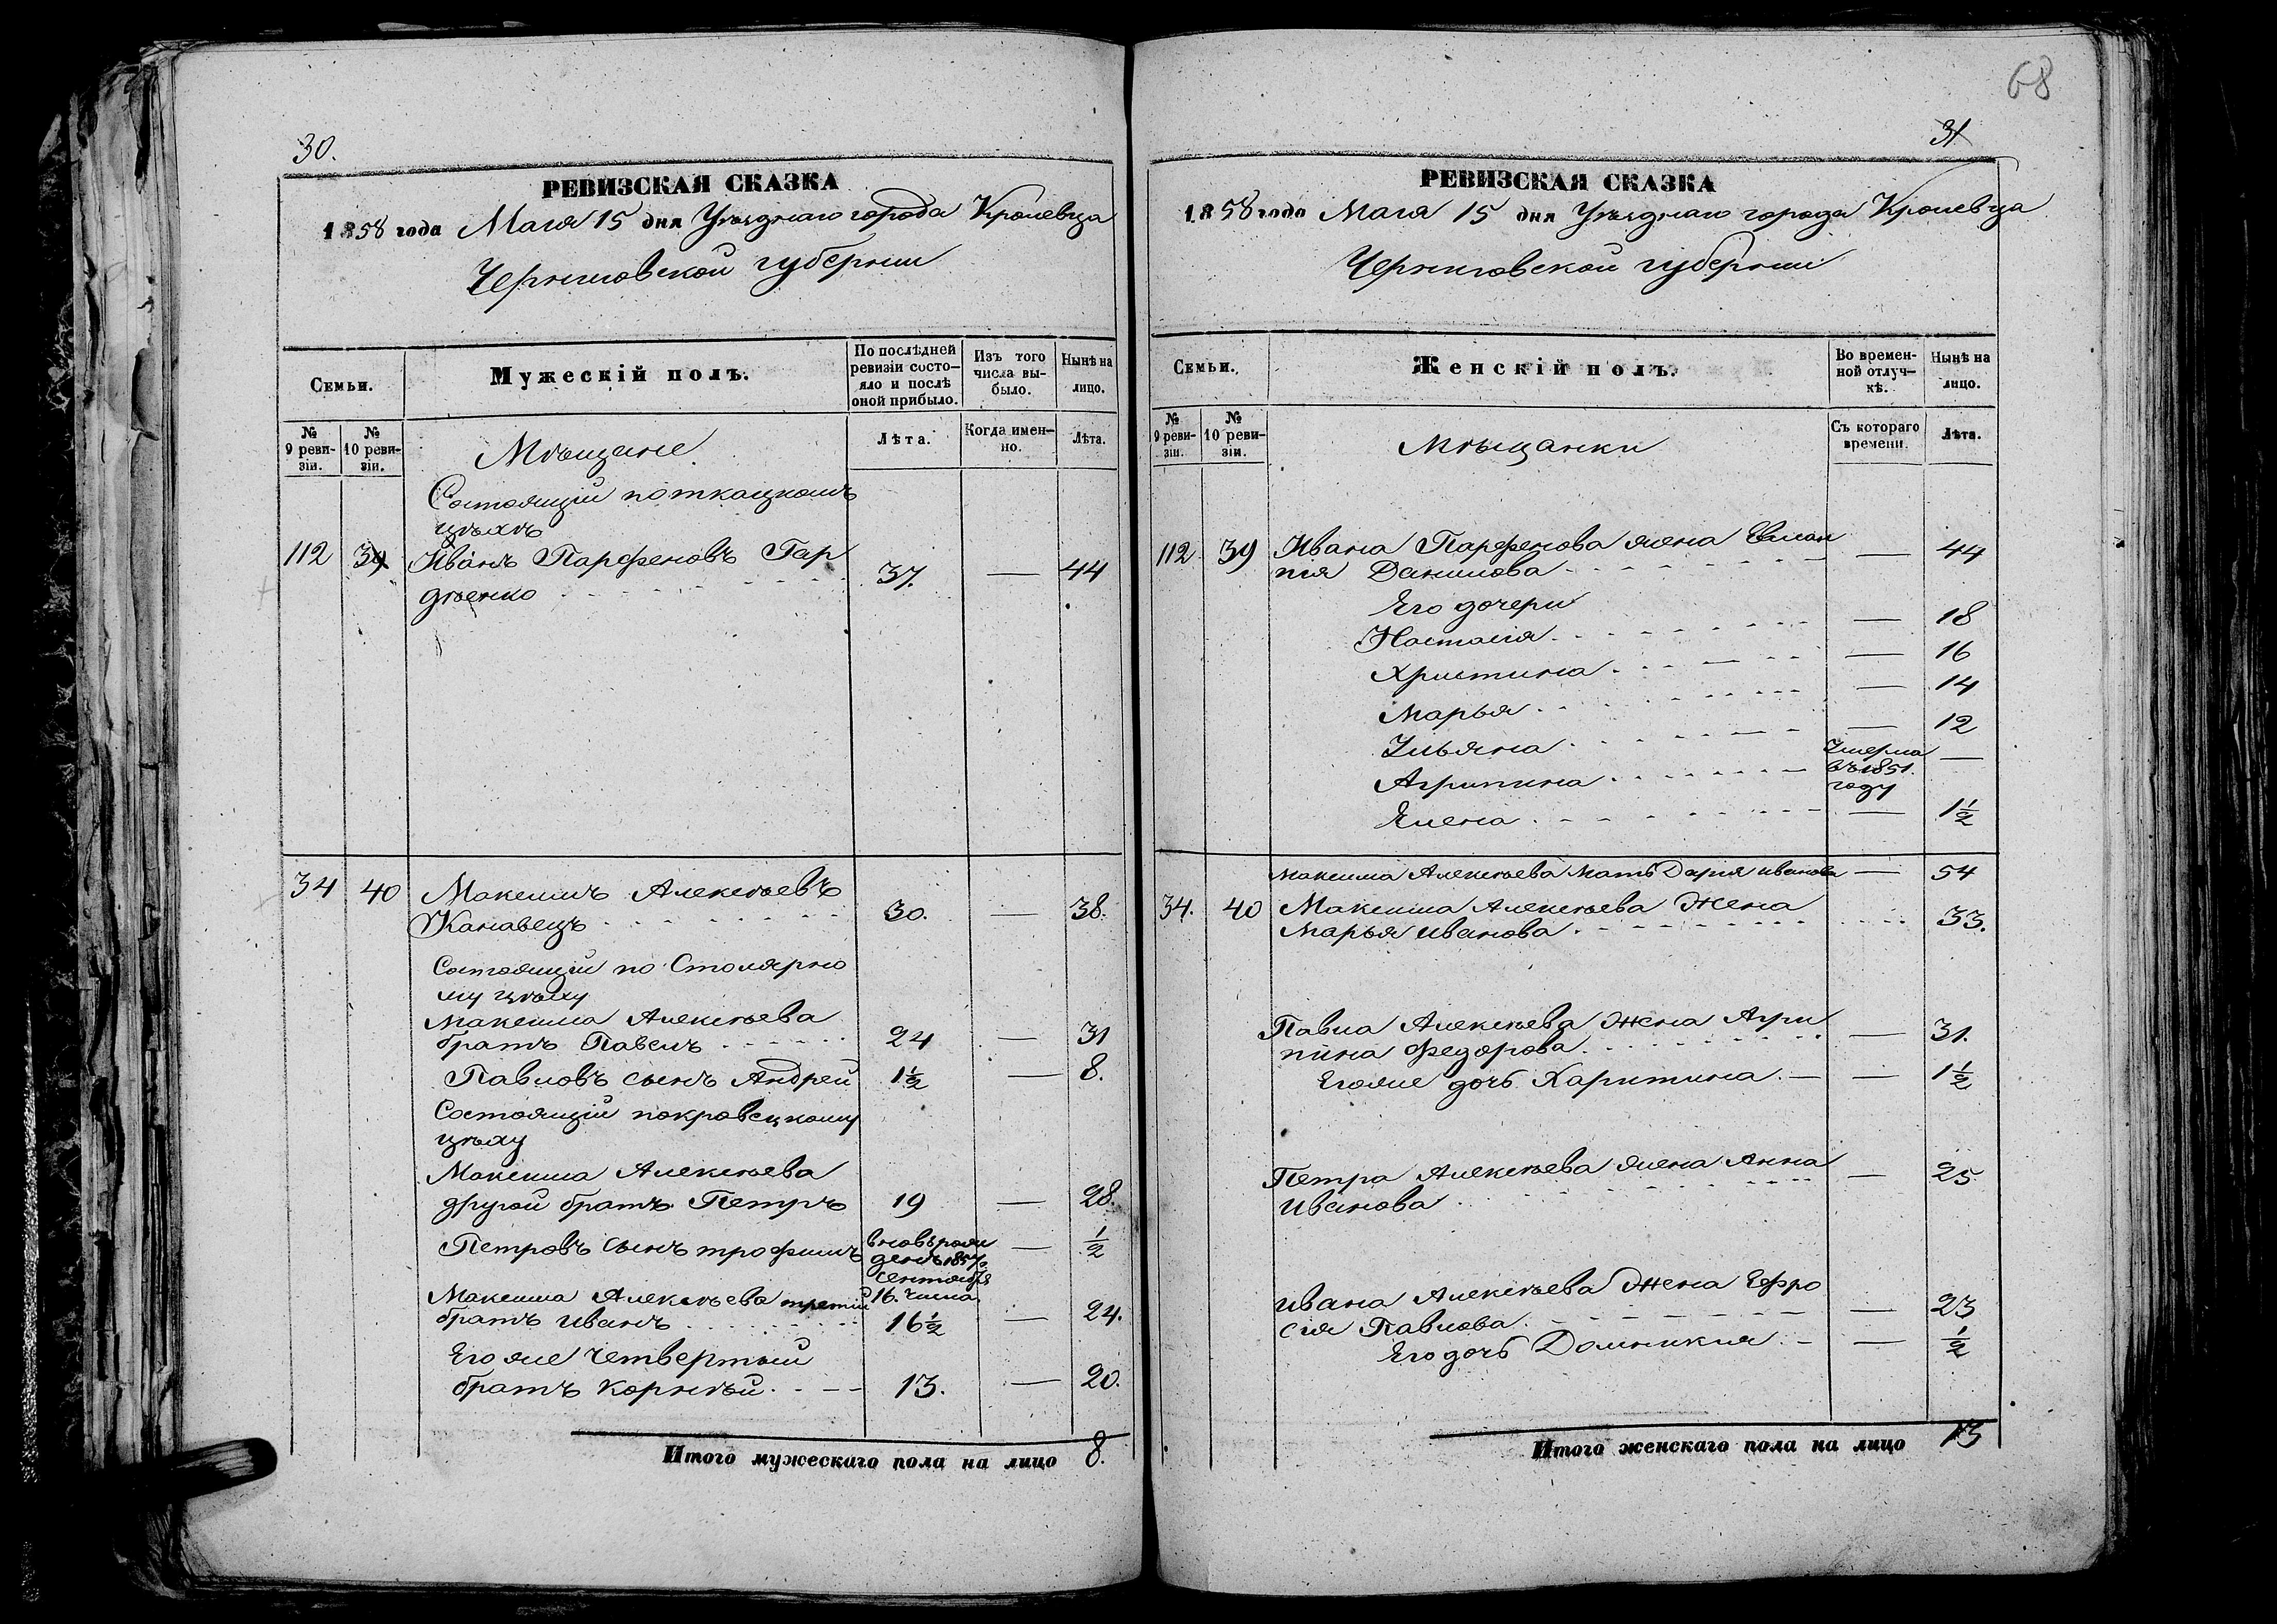 30.
РЕВИЗСКАЯ СКАЗКА
1858 года Маія 15 дня Уѣзднаго города Кролевца
Черниговской губерніи
Семьи.
Мужескій полъ.
По послѣдней
ревизіи состо-
яло и послѣ
оной прибыло.
Изъ того
числа вы-
было.
Нынѣ на
лицо.
№
9 реви-
зіи.
№
10 реви-
зіи.
Мѣщане
Лѣта.
Когда имен-
но.
Лѣта.
Состоящій по ткацкомъ
цѣхѣ
112 39 Иванъ Парфеновъ Гар
дѣенко 37. — 44
34 40 Максимъ Алексѣевъ
Канавецъ 30. — 38.
Состоящій по Столярно
му цѣху
Максима Алексѣева
братъ Павелъ 24 — 31
Павловъ сынъ Андрей 1½ — 8.
Состоящій покравецкому
цѣху
Максима Алексѣева
другой братъ Петръ 19 — 28.
Петровъ сынъ трофимъ вновьрож
денъ 1857 г.
сентября
16. числа — ½
Максима Алексѣева третій
братъ иванъ 16½ — 24.
Его же четвертый
братъ корнѣй 13. — 20.
Итого мужескаго пола на лицо 8.
68
31
РЕВИЗСКАЯ СКАЗКА
1858 года Маія 15 дня Уѣзднаго города Кролевца
Черниговской губерніи
Семьи.
Женскій полъ.
Во времен-
ной отлуч-
кѣ.
Нынѣ на
лицо.
№
9 реви-
зіи.
№
10 реви-
зіи.
Мѣщанки
Съ котораго
времени.
Лѣта.
112 39 Ивана Парфенова жена Евлам
пія Данилова — 44
Его дочери
Настасія — 18
Христина — 16
Марья — 14
Ульяна — 12
Агрипина Умерла
въ 1851.
году —
Елена — 1½
Максима Алексѣева Мать Дарія иванова — 54
34. 40 Максима Алексѣева Жена
Марья иванова 33.
Павла Алексѣева Жена Агри
пина Федорова — 31.
Егоже дочь Харитина — 1½
Петра Алексѣева жена Анна
Иванова — 25
Ивана Алексѣева Жена Ефро
сія Павлова — 23
Его дочь Домникія — ½
Итого женскаго пола на лицо 13